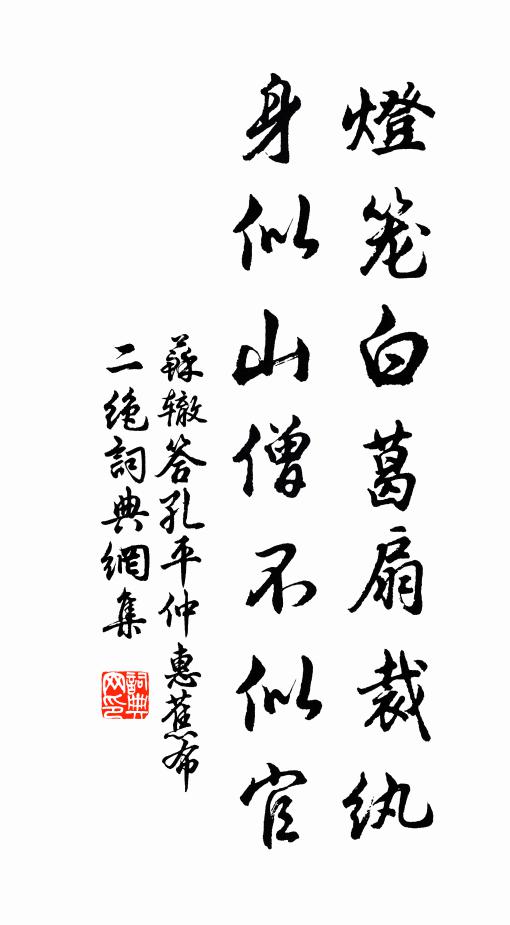 燈笼白葛扇裁纨
身似山僧不似官
蘇辙答孔平仲惠蕉布
二绝詞典網集
詞典网印